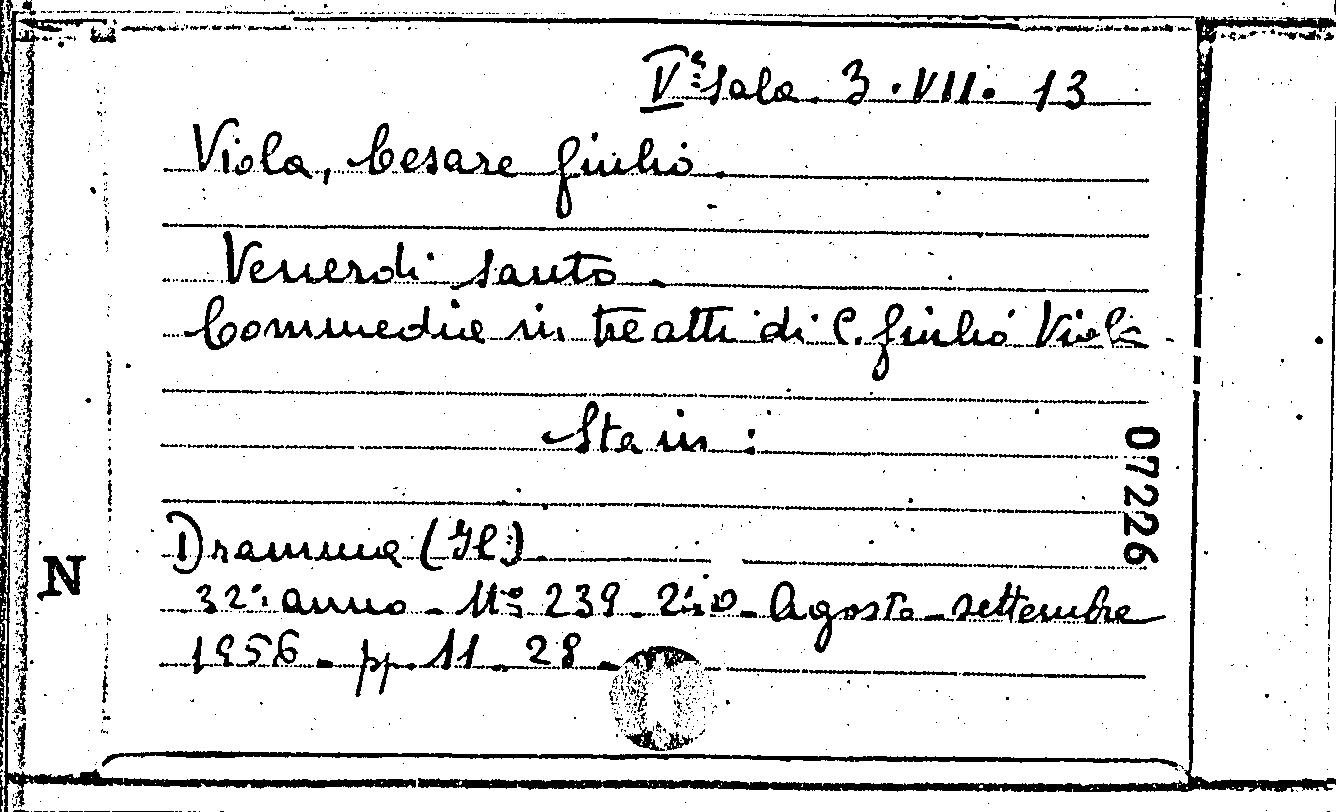 Vª Sala. 3. VII. 13
Viola, Cesare Giulio.
Venerdi Santo.
Commedia in tre atti di C. Giulio Viola
Sta in:
07226
Dramma (Il).
N
32º anno - Nº 239 - 240 - Agosto - settembre
1956 - pp. 11 - 28 -